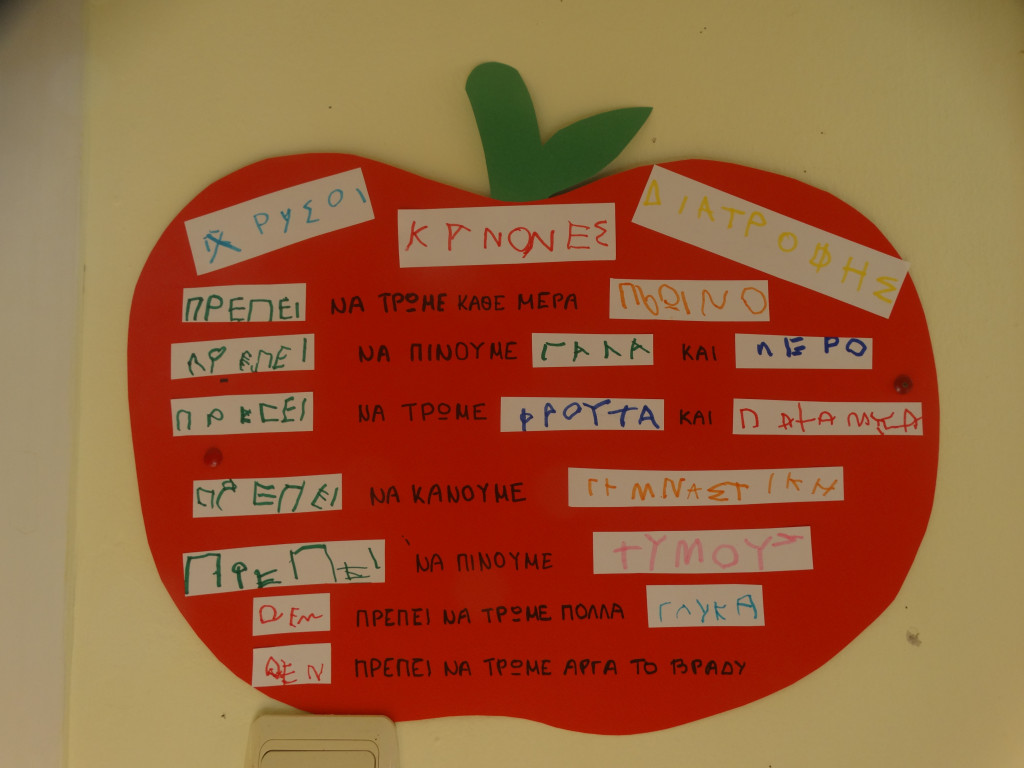 ΧΡΥΣΟΙ ΚΑΝΟΝΕΣ ΔΙΑΤΡΟΦΗΣ
ΠΡΕΠΕΙ ΝΑ ΤΡΩΜΕ ΚΑΘΕ ΜΕΡΑ ΠΡΩΙΝΟ
ΠΡΕΠΕΙ ΝΑ ΠΙΝΟΥΜΕ ΓΑΛΑ ΚΑΙ ΝΕΡΟ
ΠΡΕΠΕΙ ΝΑ ΤΡΩΜΕ ΦΡΟΥΤΑ ΚΑΙ
ΠΡΕΠΕΙ ΝΑ ΚΑΝΟΥΜΕ ΓΥΜΝΑΣΤΙΚΗ
ΠΡΕΠΕΙ ΝΑ ΠΙΝΟΥΜΕ ΧΥΜΟΥΣ
ΔΕΝ ΠΡΕΠΕΙ ΝΑ ΤΡΩΜΕ ΠΟΛΛΑ ΓΛΥΚΑ
ΔΕΝ ΠΡΕΠΕΙ ΝΑ ΤΡΩΜΕ ΑΡΓΑ ΤΟ ΒΡΑΔΥ